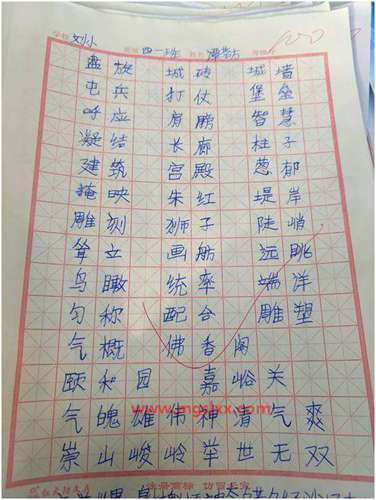 学校 刘小 班级 四一班 姓名 等级 100
盘旋 城砖 城墙
屯兵 打仗 堡垒
呼应 肩膀 智慧
凝结 长廊 柱子
建筑 宫殿 葱郁
掩映 朱红 堤岸
雕刻 狮子 陡峭
耸立 画舫 远眺
鸟瞰 统率 端洋
匀称 配合 雕塑
气概 佛香阁
颐和园 嘉峪关
气魄雄伟神清气爽
崇山峻岭举世无双